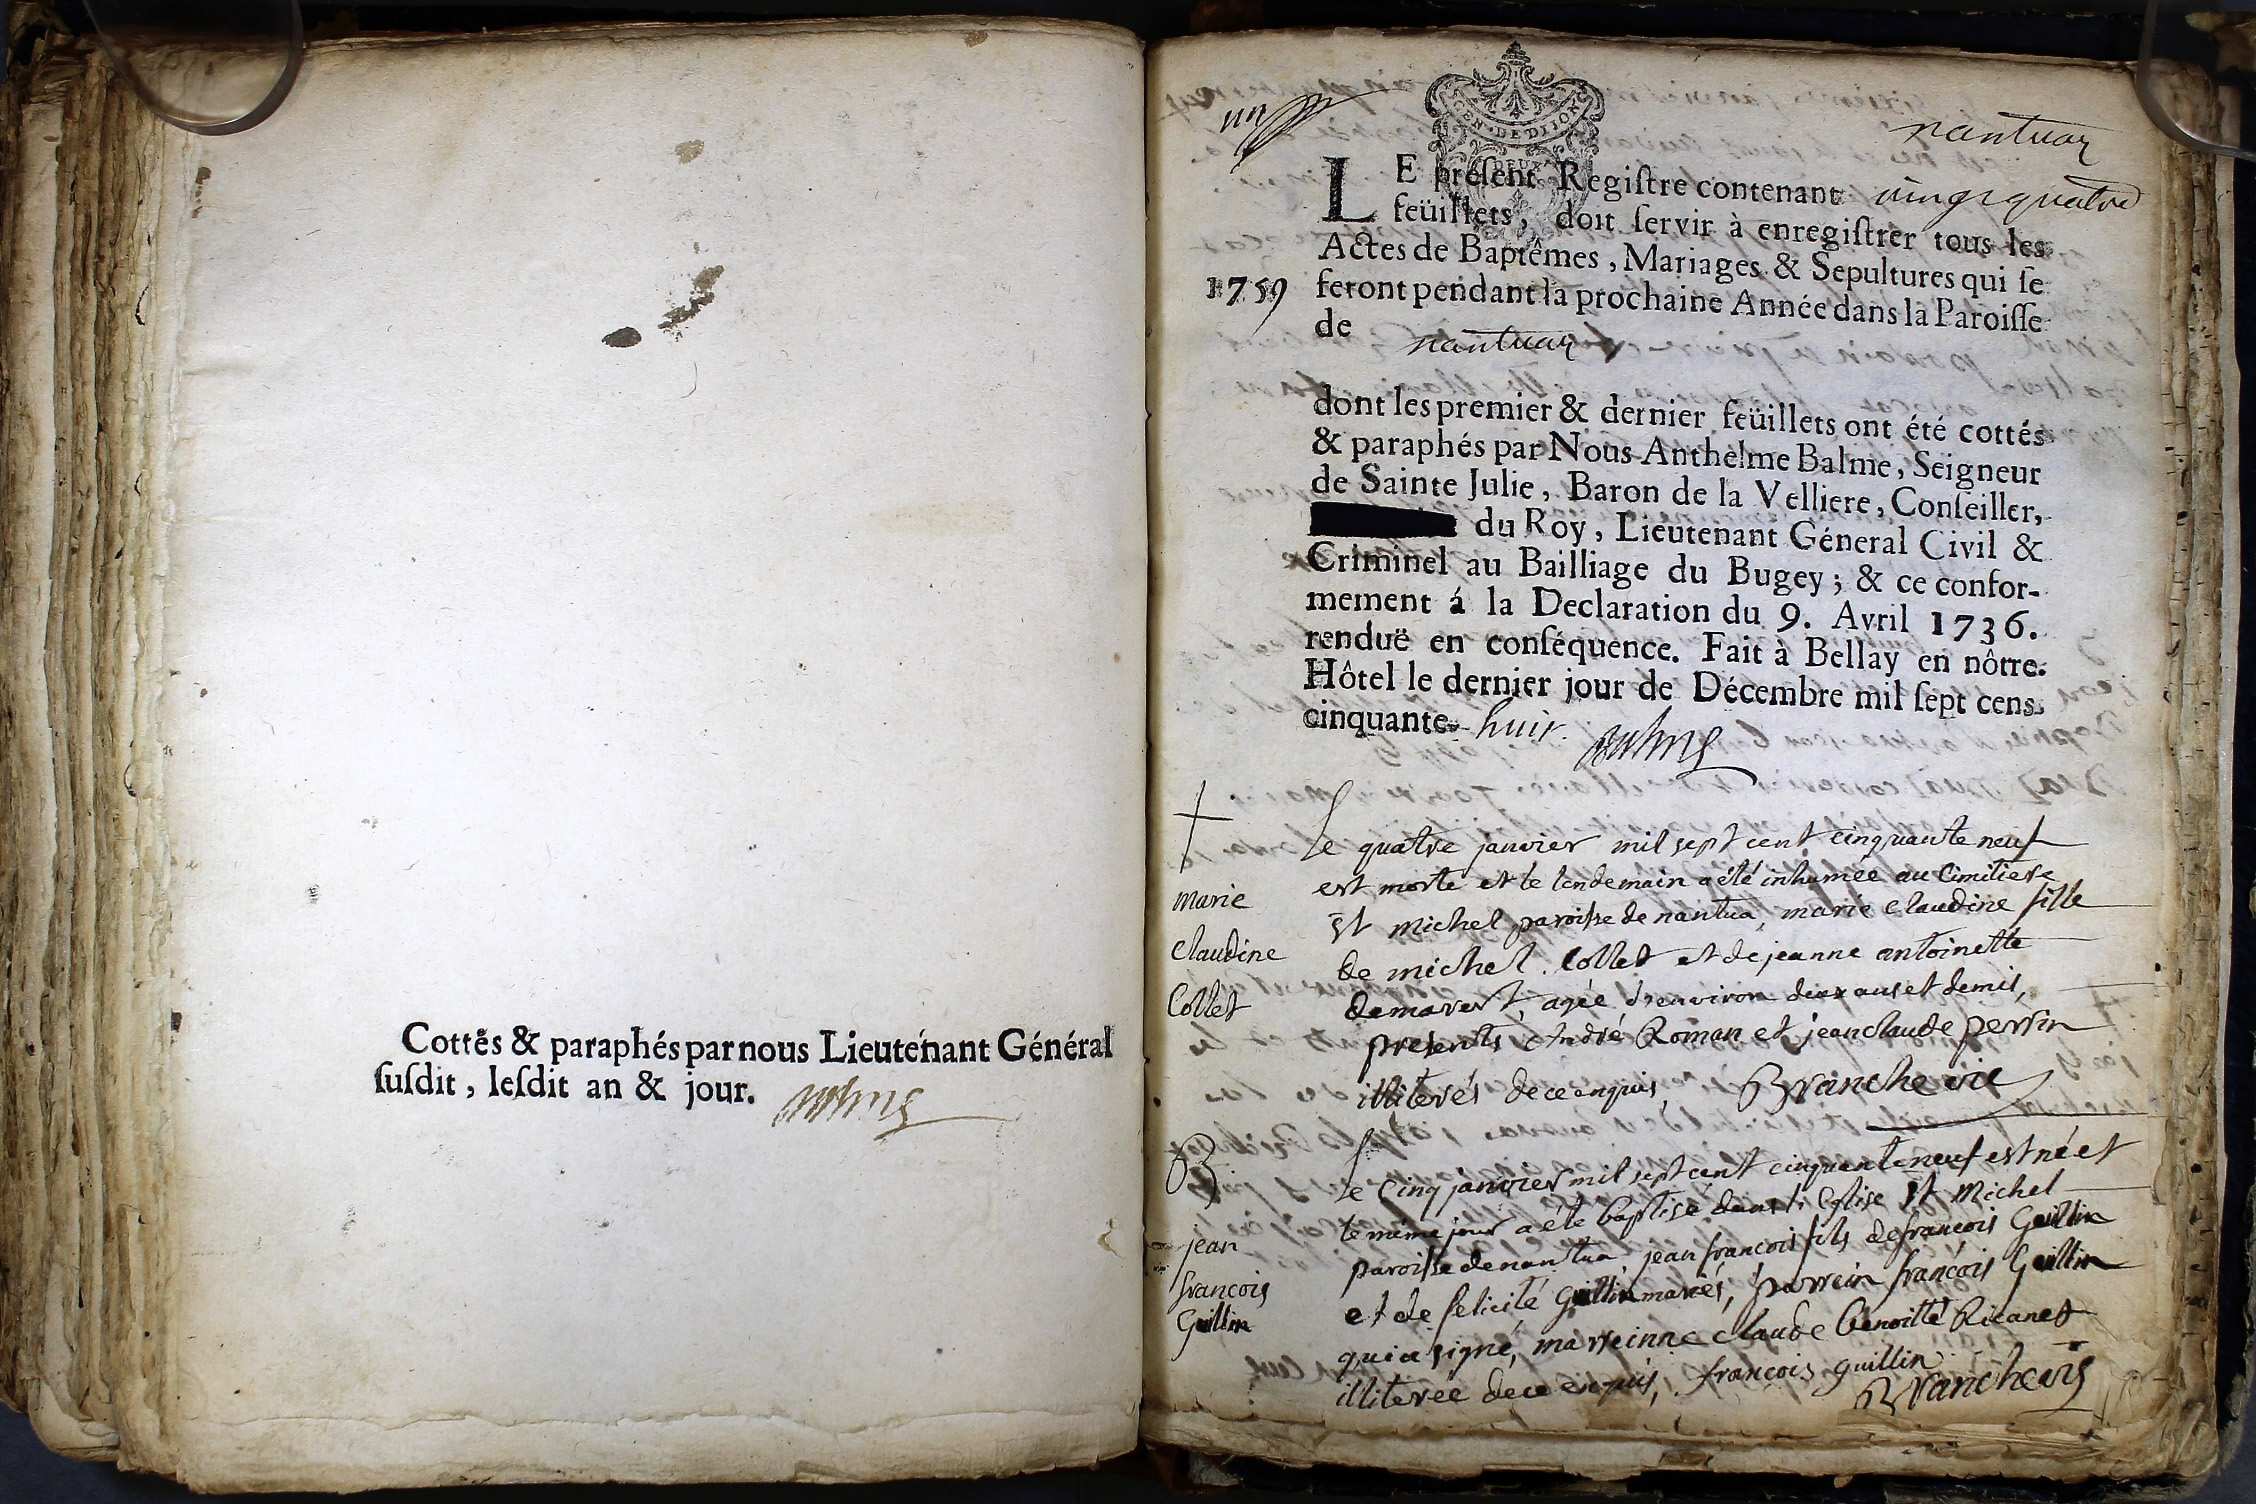 Cottés & paraphés par nous Lieutenant Général
suſdit, leſdit an & jour.
un
GEN · DE DIJON
DEUX
nantuay
LE préſent Regiſtre contenant vingt quatre
feüillets, doit ſervir à enregiſtrer tous les
Actes de Baptêmes, Mariages & Sepultures qui ſe
1759 feront pendant la prochaine Année dans la Paroiſſe
de nantuay
dont les premier & dernier feüillets ont été cottés
& paraphés par Nous Anthelme Balme, Seigneur
de Sainte Julie, Baron de la Velliere, Conſeiller,
du Roy, Lieutenant Géneral Civil &
Criminel au Bailliage du Bugey; & ce confor-
mement á la Declaration du 9. Avril 1736.
renduë en conſéquence. Fait à Bellay en nôtre
Hôtel le dernier jour de Décembre mil ſept cens
cinquante huit.
marie
claudine
Collet
Le quatre janvier mil sept cent cinquante neuf
est morte et le lendemain a été inhumée au Cimitiere
st michel paroisse de nantua, marie claudine fille
de michel Collet et de jeanne antoinette
demarest, agée d'environ deux ans et demis,
presents André Roman et jean claude perrin
illiterés de ce enquis, Branche vic
B
jean
françois
Guillin
Le cinq janvier mil sept cent cinquante neuf est né et
le même jour a été baptisé dans l'Eglise st Michel
paroisse de nantua, jean françois fils de françois Guillin
et de felicité Guillin mariés, parrein françois Guillin
qui a signé, marreinne claude benoitte Ricanet
illiterée de ce enquis, françois guillin
Branche vic